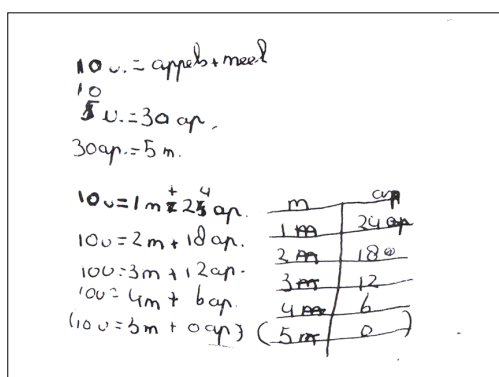 10 v. = appels + meel
10
5 v. = 30 ap.
30 ap. = 5 m.
10 v = 1 m + 24 ap.
10 v = 2 m + 18 ap.
10 v = 3 m + 12 ap.
10 v = 4 m + 6 ap.
(10 v = 5 m + 0 ap)
m ap
1 m 24 ap
2 m 18
3 m 12
4 m 6
(5 m 0)